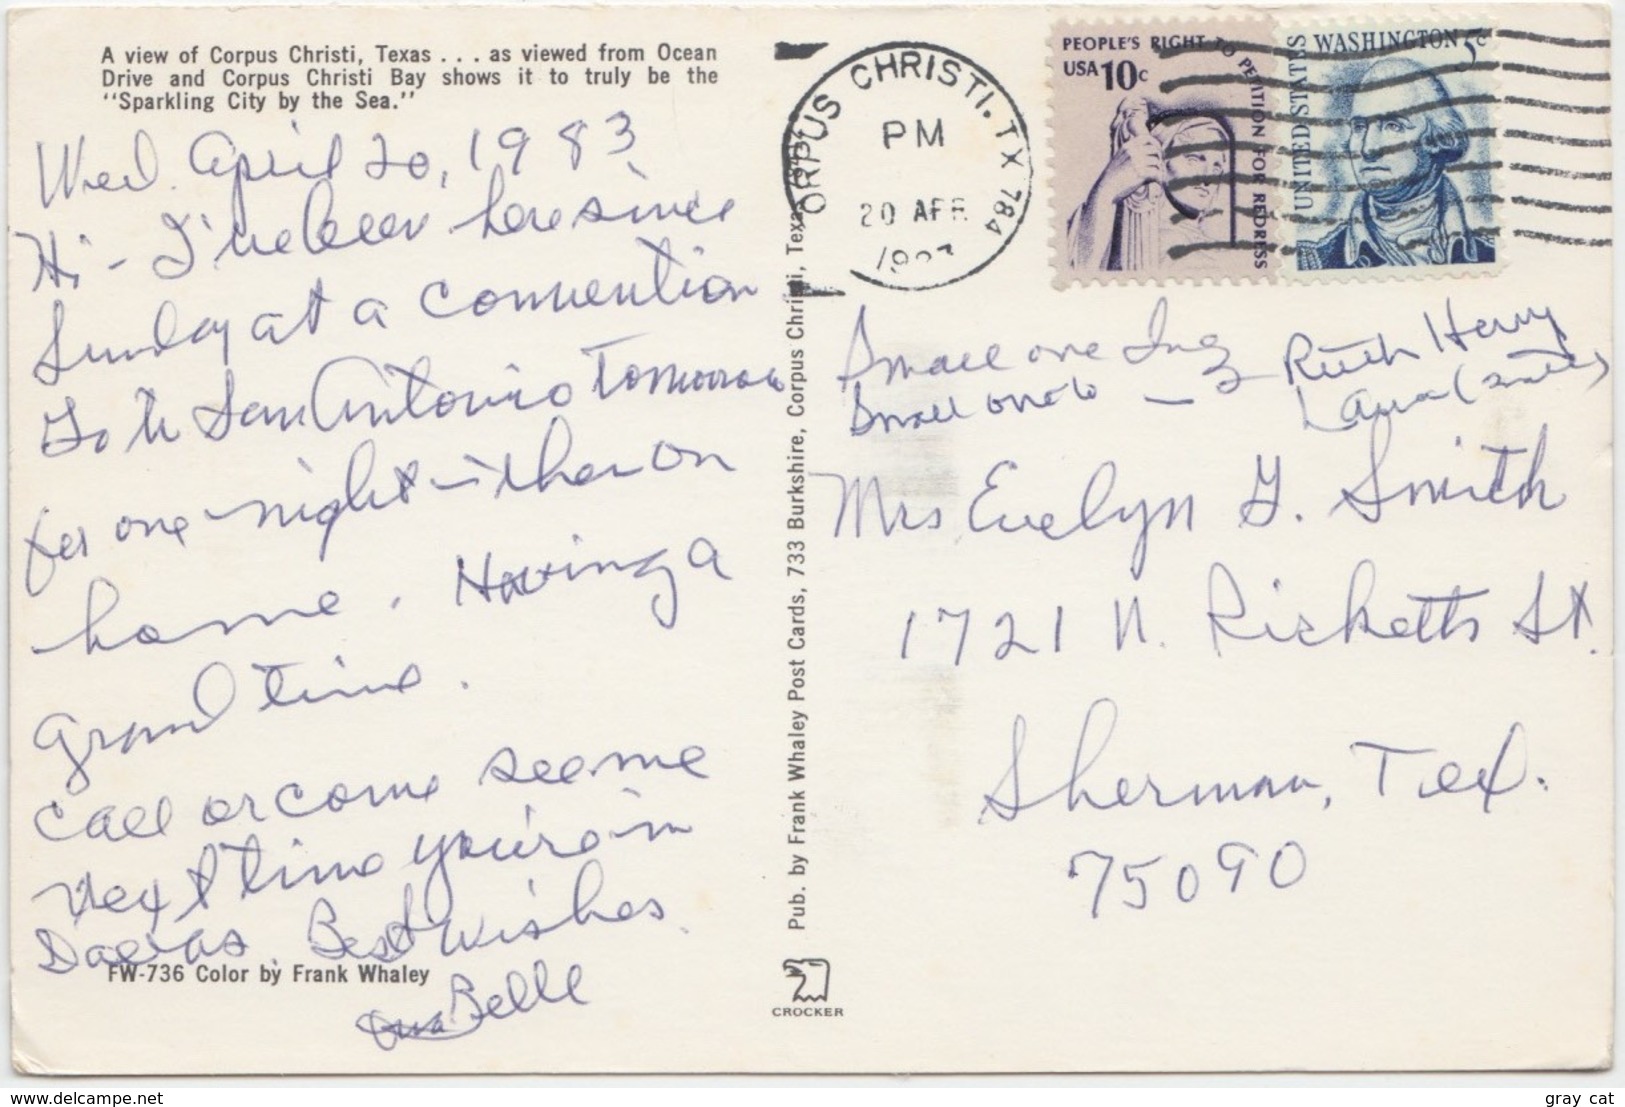 A view of Corpus Christi, Texas . . . as viewed from Ocean
Drive and Corpus Christi Bay shows it to truly be the
"Sparkling City by the Sea."
Wed. April 20, 1983
Hi - I've been here since
Sunday at a convention
Go to San Antonio tomorrow
for one night - then on
home. Having a
grand time.
Call or come see me
next time you're in
Dallas. Best wishes
Belle
FW-736 Color by Frank Whaley
Pub. by Frank Whaley Post Cards, 733 Burkshire, Corpus Christi, Texas
CROCKER
CORPUS CHRISTI, TX 784
PM
20 APR
PEOPLE'S RIGHT TO PETITION FOR REDRESS
USA 10c
UNITED STATES
WASHINGTON 5c
Small one
Small one to — Ruth
Mrs Evelyn G. Smith
1721 N. Ricketts St.
Sherman, Tex.
75090
delcampe.net
gray cat